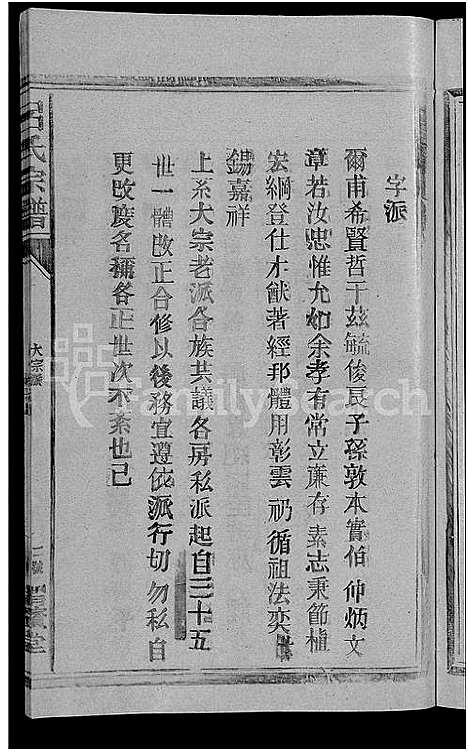 字派
爾甫希賢哲于茲毓俊良子孫敦本實伯仲炳文
章若汝忠惟允如余孝有常立廉存素志秉節植
宏綱登仕才猷著經邦體用彰雲礽循祖法奕世
錫嘉祥
上系大宗老派各族共議各房私派起自三十五
世一體改正合修以後務宜遵依派行切勿私自
更改庶名稱各正世次不紊也已
呂氏宗譜
大宗派
FamilySearch